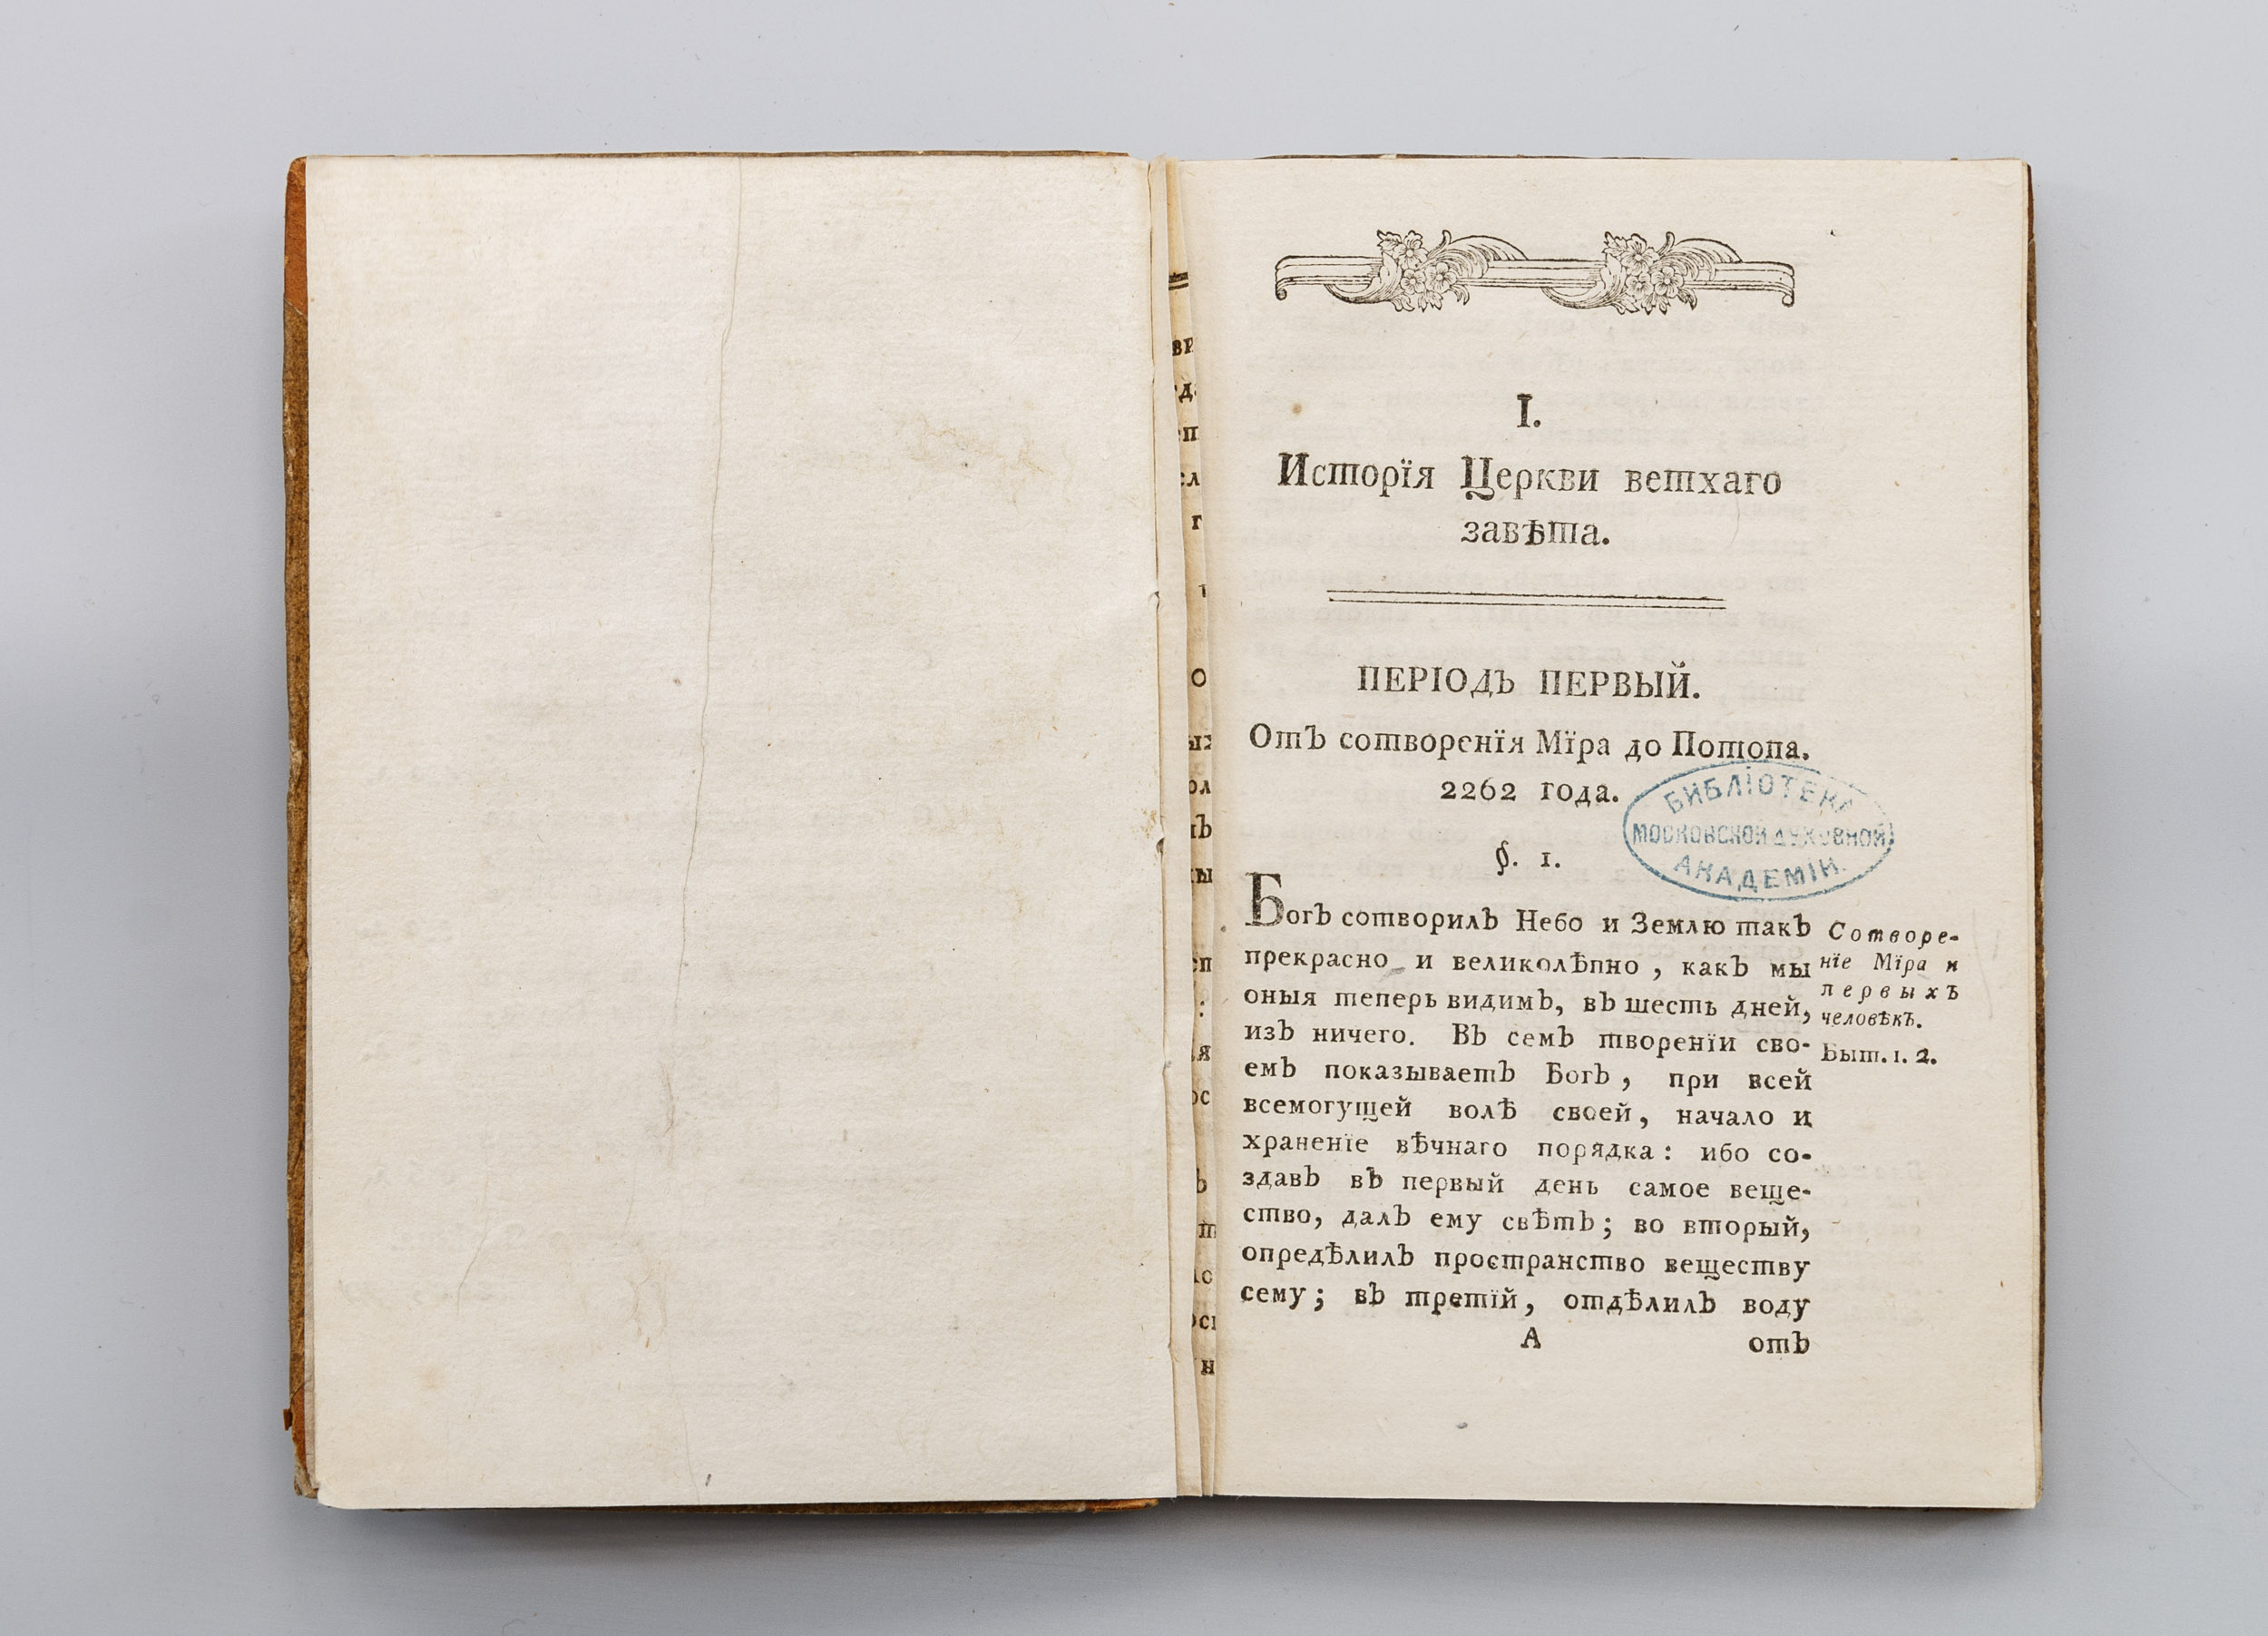 I.
Исторїя Церкви ветхаго
завѣта.
ПЕРІОДЪ ПЕРВЫЙ.
Отъ сотворенїя Мїра до Потопа.
2262 года.
БИБЛІОТЕКА
МОСКОВСКОЙ ДУХОВНОЙ
АКАДЕМІИ.
§. 1.
Богъ сотворилъ Небо и Землю такъ
прекрасно и великолѣпно, какъ мы
оныя теперь видимъ, въ шесть дней,
изъ ничего. Въ семъ творенїи сво-
емъ показываетъ Богъ, при всей
всемогущей волѣ своей, начало и
храненїе вѣчнаго порядка: ибо со-
здавъ въ первый день самое веще-
ство, далъ ему свѣтъ; во вторый,
опредѣлилъ пространство веществу
сему; въ третїй, отдѣлилъ воду
А отъ
Сотворе-
нїе Мїра и
первыхъ
человѣкъ.
Быт. 1. 2.